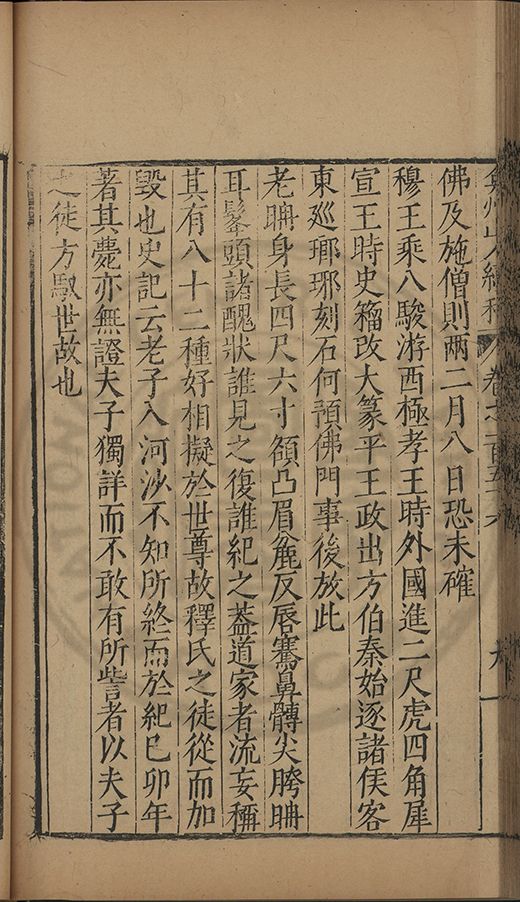 弇州山人續稿 卷之一百五十六 九
佛及施僧則兩二月八日恐未確
穆王乘八駿游西極孝王時外國進二尺虎四角犀
宣王時史籀改大篆平王政出方伯秦始逐諸侯客
東巡瑯琊刻石何預佛門事後放此
老聃身長四尺六寸額凸眉麄反唇騫鼻髆尖胯
耳鬔頭諸醜狀誰見之復誰紀之蓋道家者流妄稱
其有八十二種好相擬於世尊故釋氏之徒從而加
毀也史記云老子入河沙不知所終而於紀巳卯年
著其薨亦無證夫子獨詳而不敢有所訾者以夫子
之徒方馭世故也